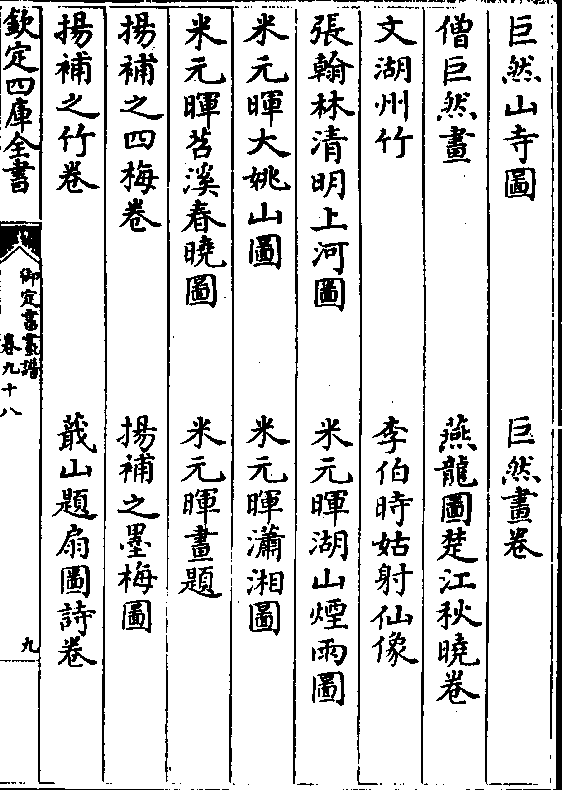 巨然山寺圖　巨然畫卷
僧巨然畫　燕龍圖楚江秋曉卷
文湖州竹　李伯時姑射仙像
張翰林清明上河圖　米元暉湖山煙雨圖
米元暉大姚山圖　米元暉瀟湘圖
米元暉苕溪春曉圖　米元暉畫題
揚補之四梅卷　揚補之墨梅圖
揚補之竹卷　蕺山題扇圖詩卷
欽定四庫全書
御定書畫譜
卷九十八
九